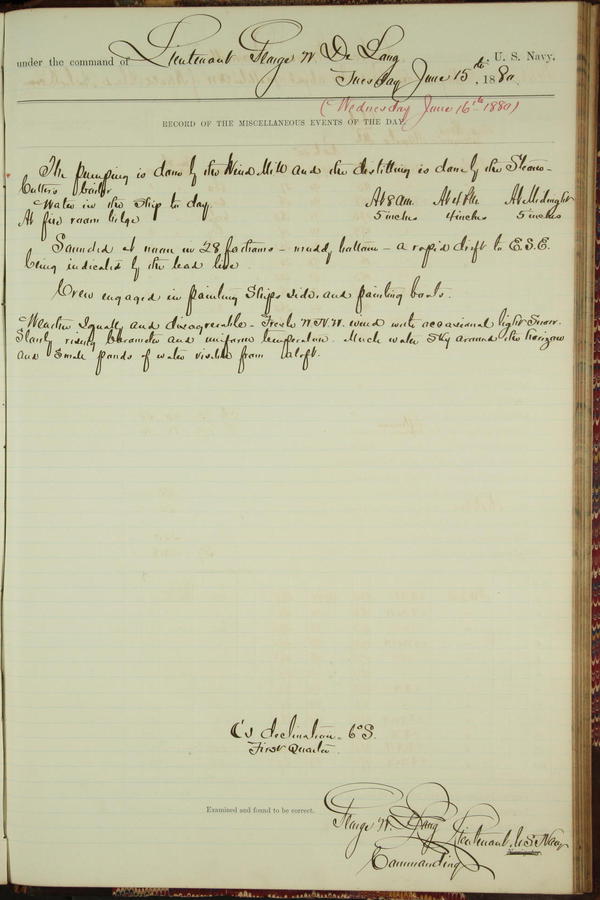 under the command of Lieutenant George W. De Long U. S. Navy.
Tuesday June 15th, 1880
(Wednesday June 16th 1880)
RECORD OF THE MISCELLANEOUS EVENTS OF THE DAY.
The pumping is done by the Wind Mill and the distilling is done by the Steam-
Cutters boiler
Water in the Ship to day. At 8 AM. At 4 PM. At Midnight
At fire room bilge 5 inches 4 inches 5 inches
Sounded at noon in 28 fathoms - muddy bottom - a rapid drift to E.S.E.
being indicated by the lead line.
Crew engaged in painting Ships side, and painting boats.
Weather Squally and disagreeable - Fresh W.N.W. wind with occasional light Snow.
Slowly rising barometer and uniform temperature. Much water sky around the horizon
and small ponds of water visible from aloft.
☾'s declination - 6° S.
First Quarter
Examined and found to be correct.
George W. De Long Lieutenant, U.S. Navy
Navigator.
Commanding